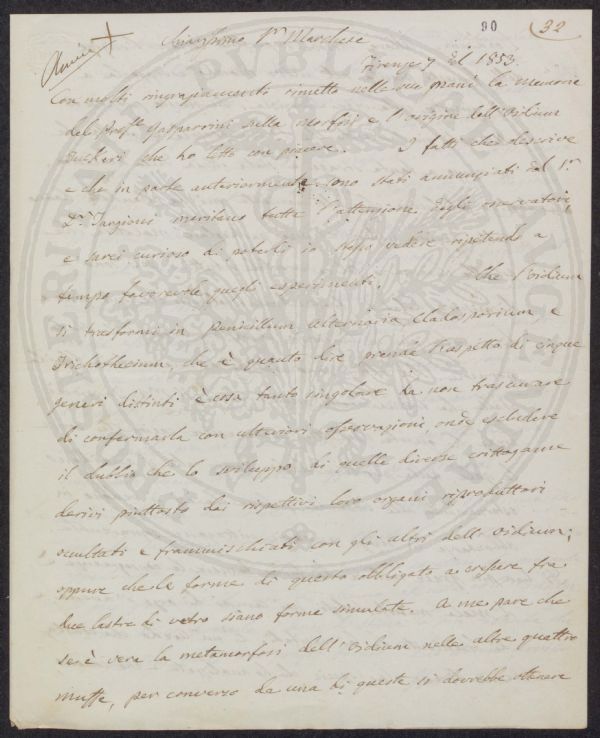 90
32
Amici
Chiarissimo Sr. Marchese
Firenze 7 1853.
Con molti ringraziamenti rimetto nelle sue mani la memoria
del Proff.re Gasparrini sulla morfosi e l'origine dell'Oidium
Tuckeri che ho letto con piacere. I fatti che descrive
e che in parte anteriormente sono stati annunziati dal Sr.
Dr. Targioni meritano tutta l'attenzione degli osservatori,
e sarei curioso di poterli io stesso vedere ripetendo a
tempo favorevole quegli esperimenti. Che l'oidium
si trasformi in Penicillum, Alternaria, Cladosporium, e
Trichothecium, che è quanto dire prenda l'aspetto di cinque
generi distinti è cosa tanto singolare da non trascurare
di confermarla con ulteriori osservazioni, onde escludere
il dubbio che lo sviluppo di quelle diverse crittogame
derivi piuttosto dai rispettivi loro organi riproduttori
occultati e frammischiati con gli altri dell'Oidium;
oppure che le forme di questo obbligato a crescere fra
due lastre di vetro siano forme simulate. A me pare che
se è vera la metamorfosi dell'Oidium nelle altre quattro
muffe, per converso da una di queste si dovrebbe ottenere
PUBLICAE